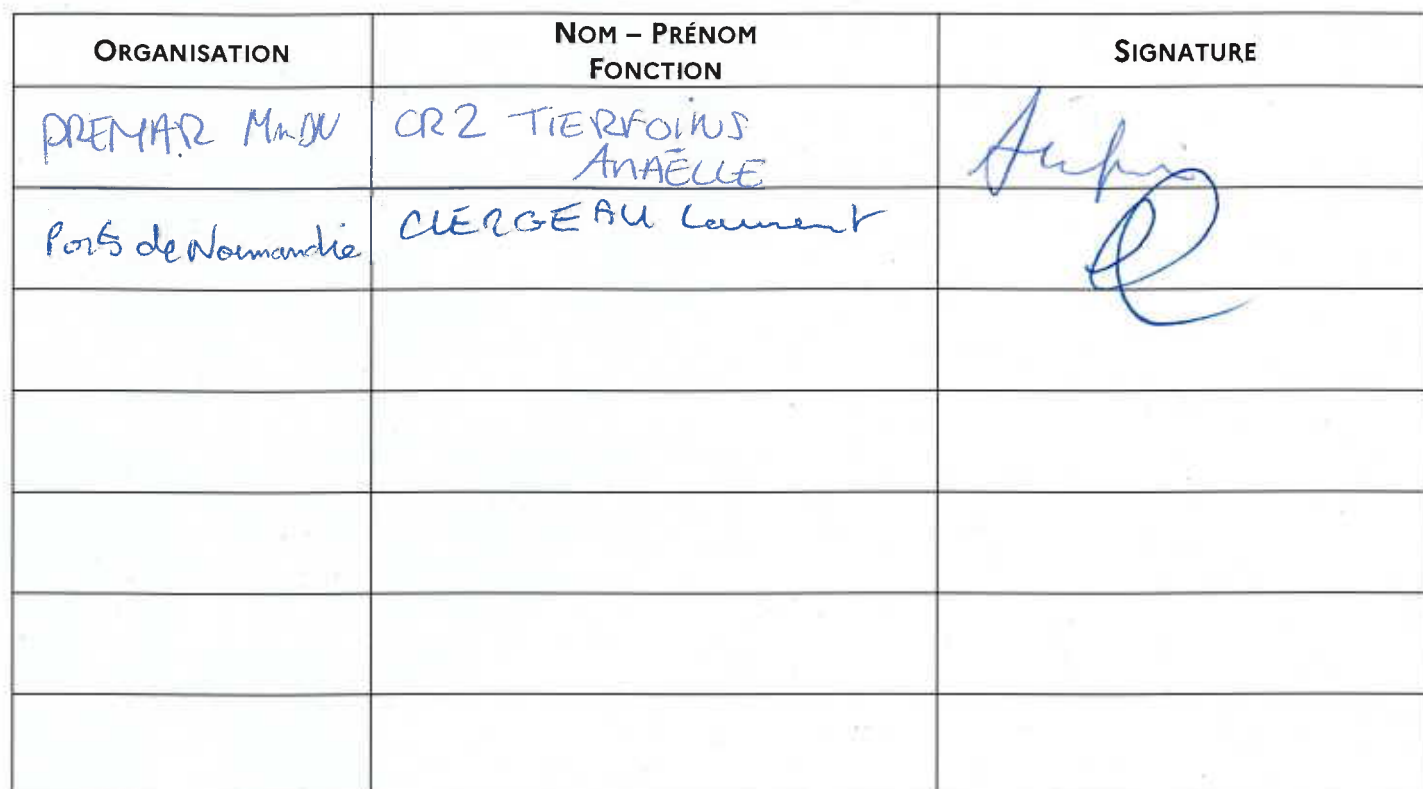 ORGANISATION
NOM – PRÉNOM
FONCTION
SIGNATURE
PREMAR MnDN
CR2 TIERFOINS
ANAËLLE
Ports de Normandie
CLERGEAU Laurent